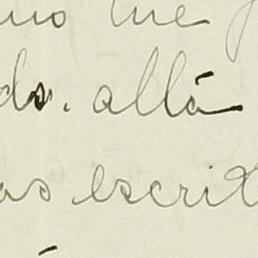 no me
ds. allá
as escrit